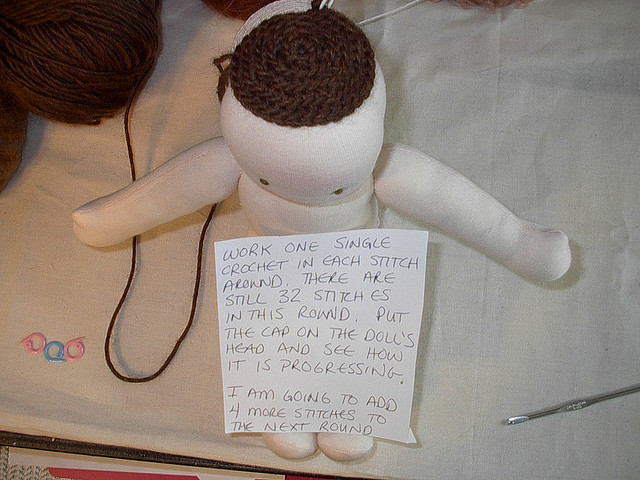 WORK ONE SINGLE
CROCHET IN EACH STITCH
AROUND. THERE ARE
STILL 32 STITCHES
IN THIS ROUND. PUT
THE CAP ON THE DOLL'S
HEAD AND SEE HOW
IT IS PROGRESSING.
I AM GOING TO ADD
4 MORE STITCHES TO
THE NEXT ROUND